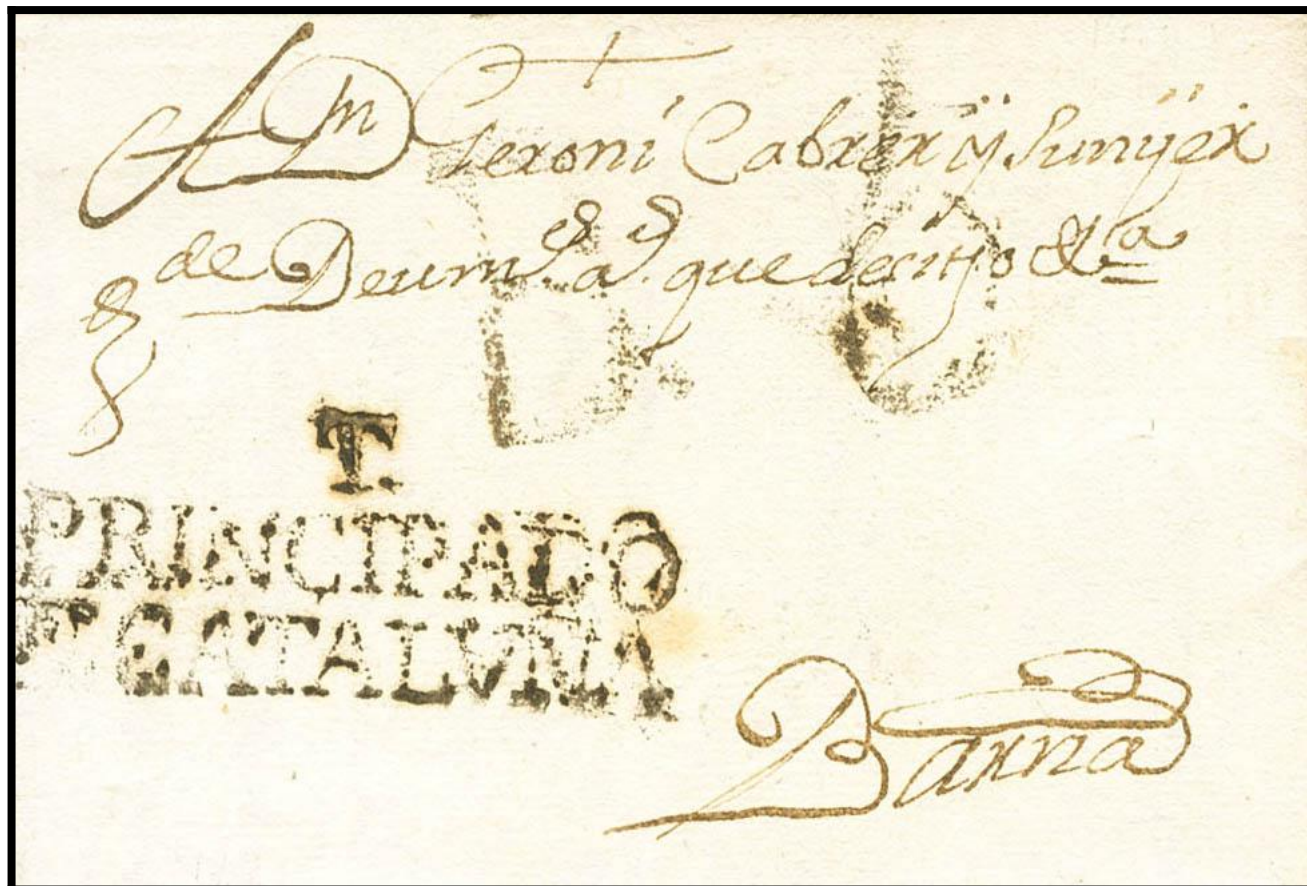 A Dn Geroni Cabrer ÿ Sunÿer
de Deum que desitjo &a
T.
PRINCIPADO
CATALUÑA
Barna